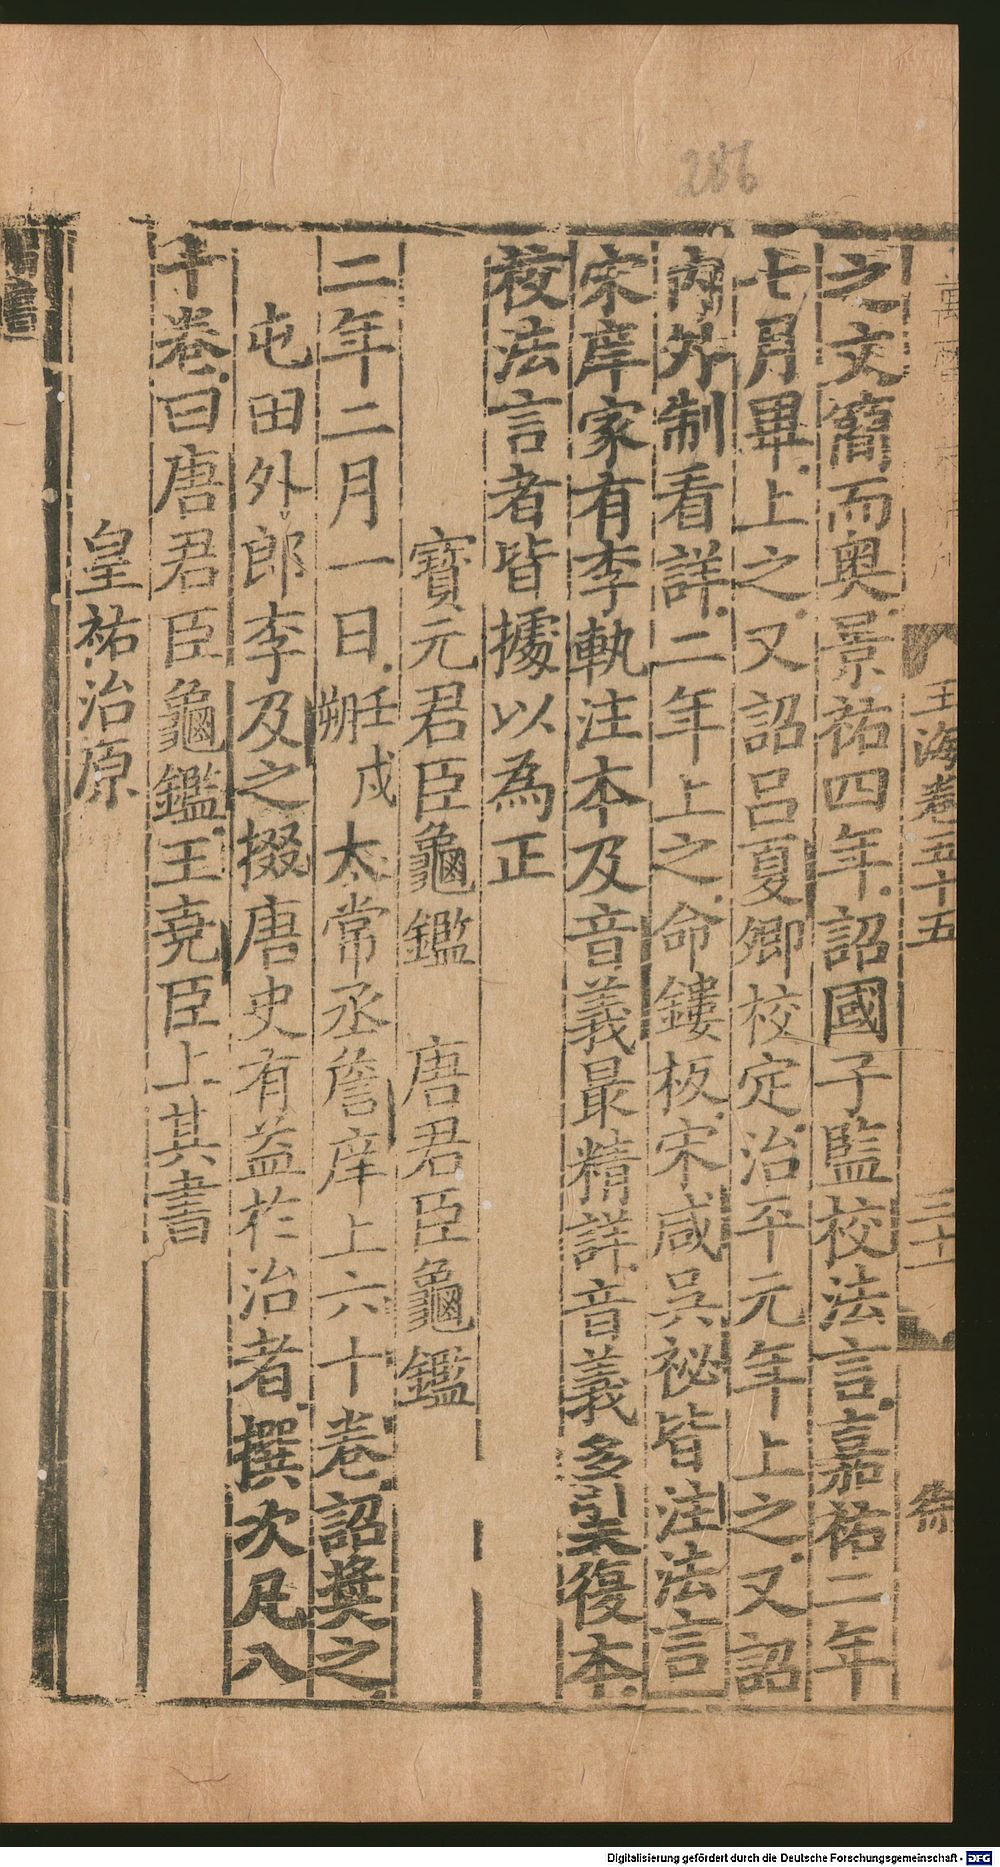 286
玉海卷五十五
三十
之文簡而奧景祐四年詔國子監校法言嘉祐二年
七月畢上之又詔呂夏卿校定治平元年上之又詔
內外制看詳二年上之命鏤板宋咸吳祕皆注法言
宋庠家有李軌注本及音義最精詳音義多引天復本
校法言者皆據以為正
寶元君臣龜鑑 唐君臣龜鑑
二年二月一日壬戌朔太常丞詹庠上六十卷詔獎之
屯田外郎李及之掇唐史有益於治者撰次凡八
十卷曰唐君臣龜鑑王堯臣上其書
皇祐治原
Digitalisierung gefördert durch die Deutsche Forschungsgemeinschaft - DFG